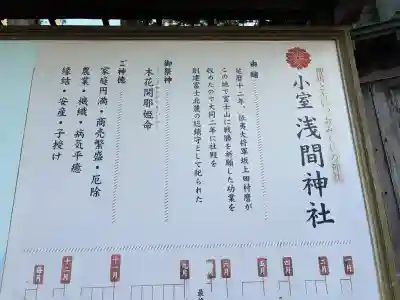 小室浅間神社
御由緒
延暦十二年、征夷大将軍坂上田村麿が
この地で富士山に戦勝を祈願した功業を
収めたので大同二年に社殿を
創建富士北麓の総鎮守として祀られた
御祭神
木花開耶姫命
ご神徳
家庭円満・商売繁盛・厄除
農業・機織・病気平癒
縁結・安産・子授け
一月
二月
四月
五月
六月
九月
十一月
十二月
毎月